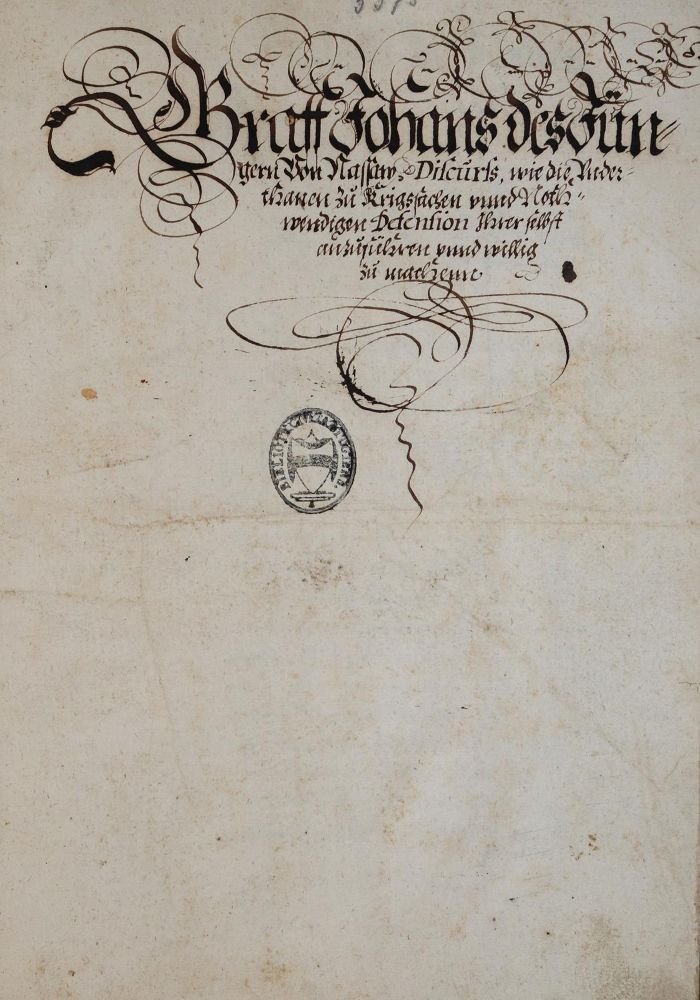 Graff Johans des Jün-
gern Von Nassaw Discurs, wie die Vnder-
thanen zu Krigssachen vnnd Noth-
wendigen Defension Ihrer selbst
anzuführen vnnd willig
zu machenn